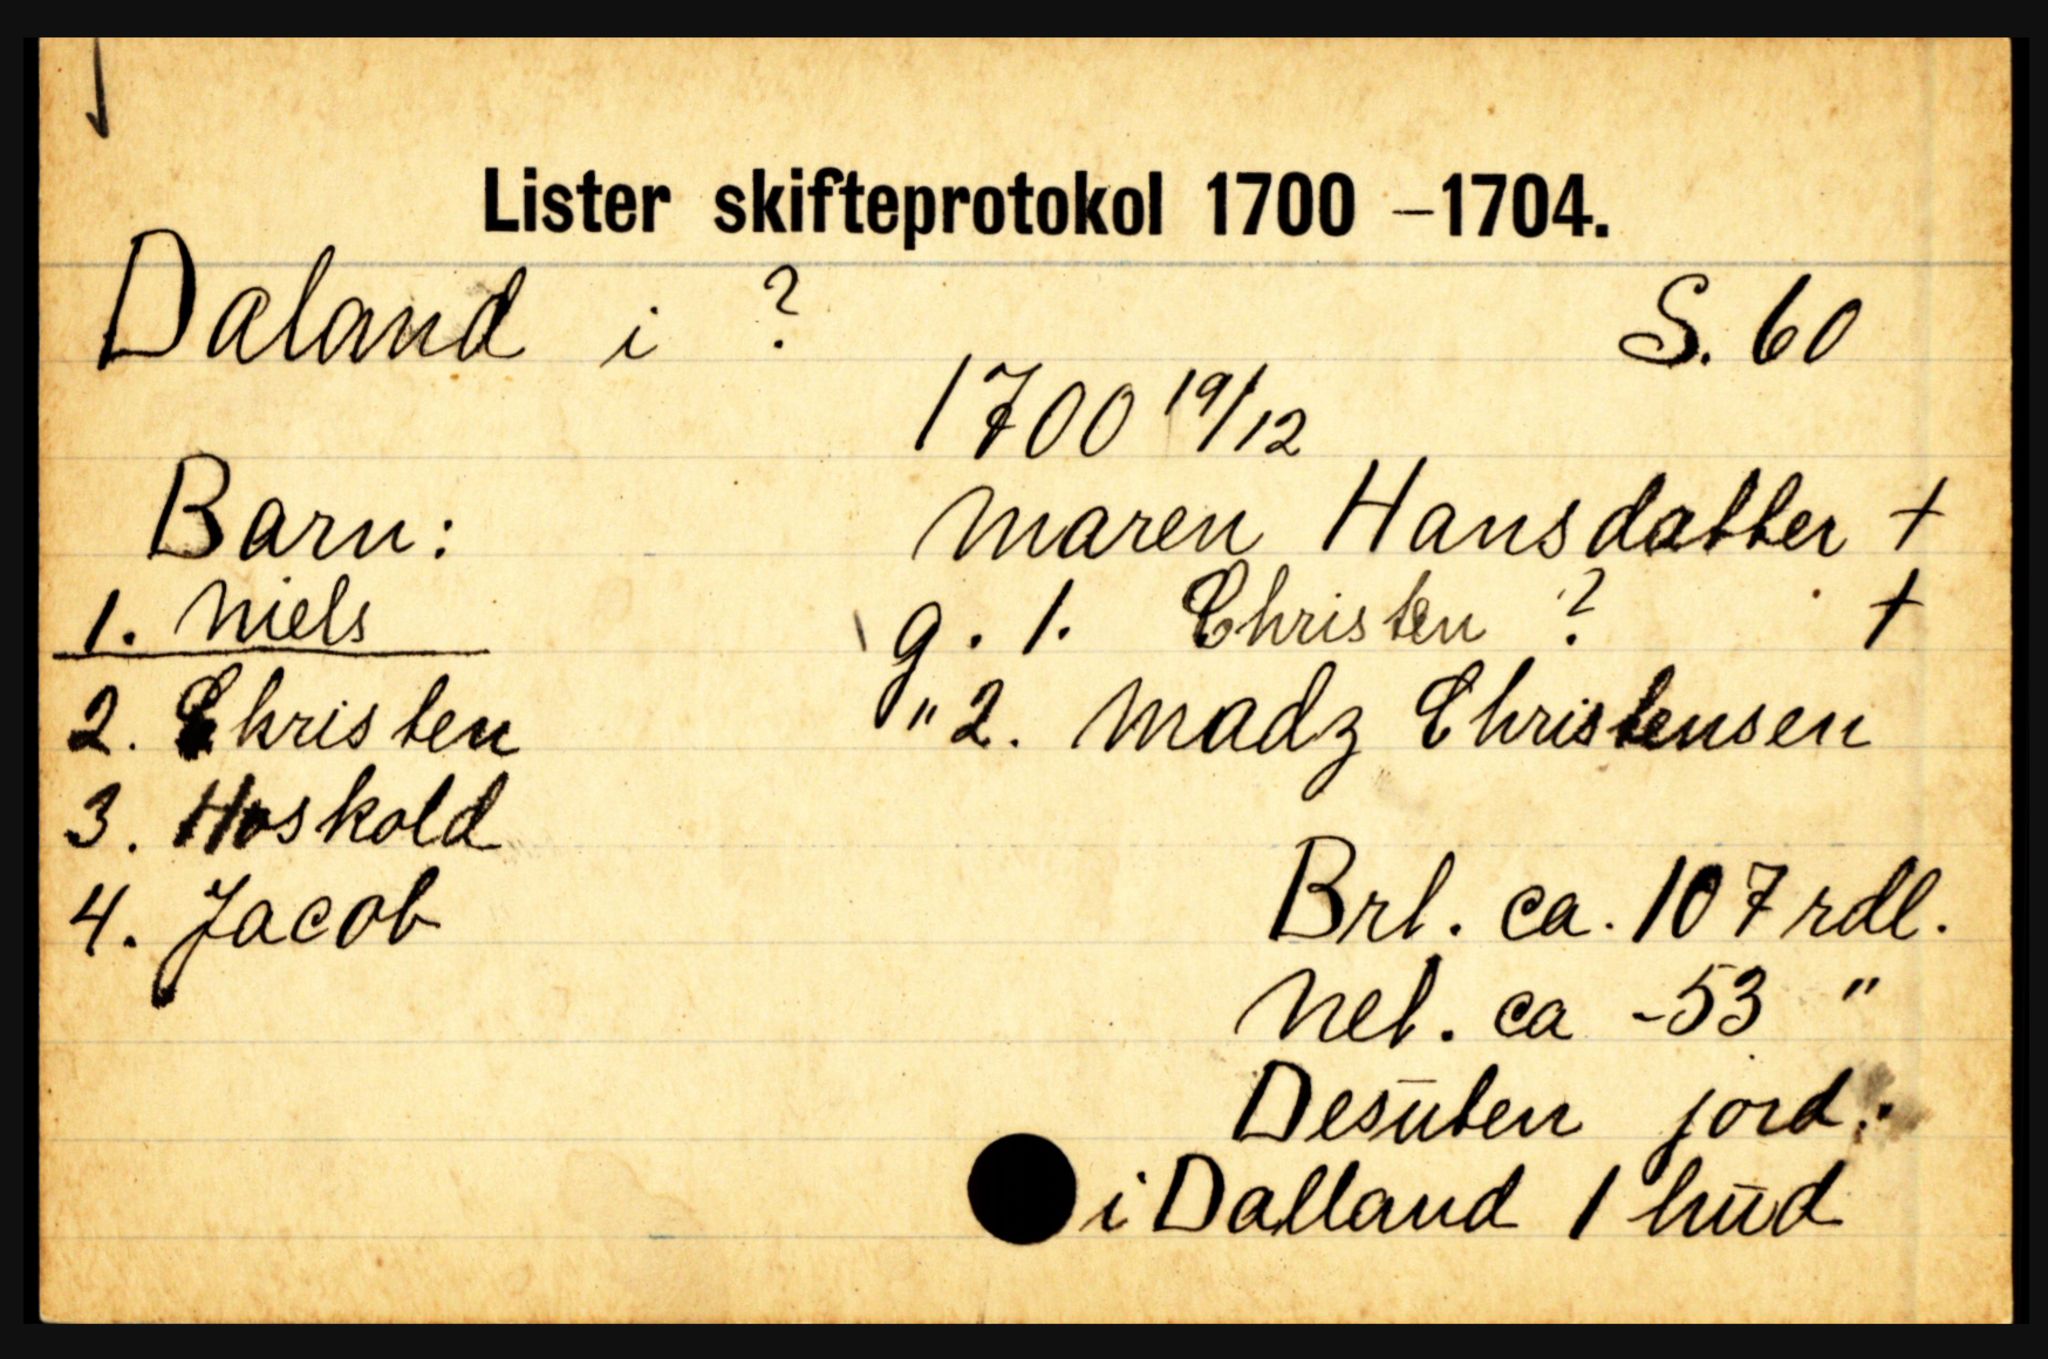 Lister skifteprotokol 1700 –1704.
Daland i ? S. 60
1700 19/12
Barn: Maren Hansdatter +
1. Niels g. 1. Christen ? +
2. Christen " 2. Madz Christensen
3. Hoskold
4. Jacob Brt. ca. 107 rdl.
Net. ca - 53 "
Desuten jord.
i Dalland 1 hud